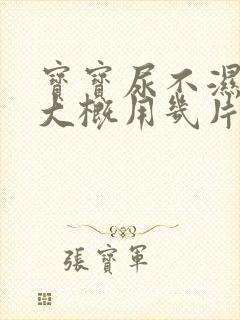 寶寶尿不濕
大概用幾片
張寶軍